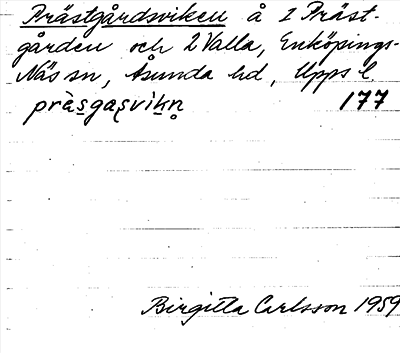 Prästgårdsviken å 1 Präst-
gården och 2 Valla, Enköpings-
Näs sn, Åsunda hd, Upps l.
prä̀s̲gas̨vik̲n̥ 177
Birgitta Carlsson 1959